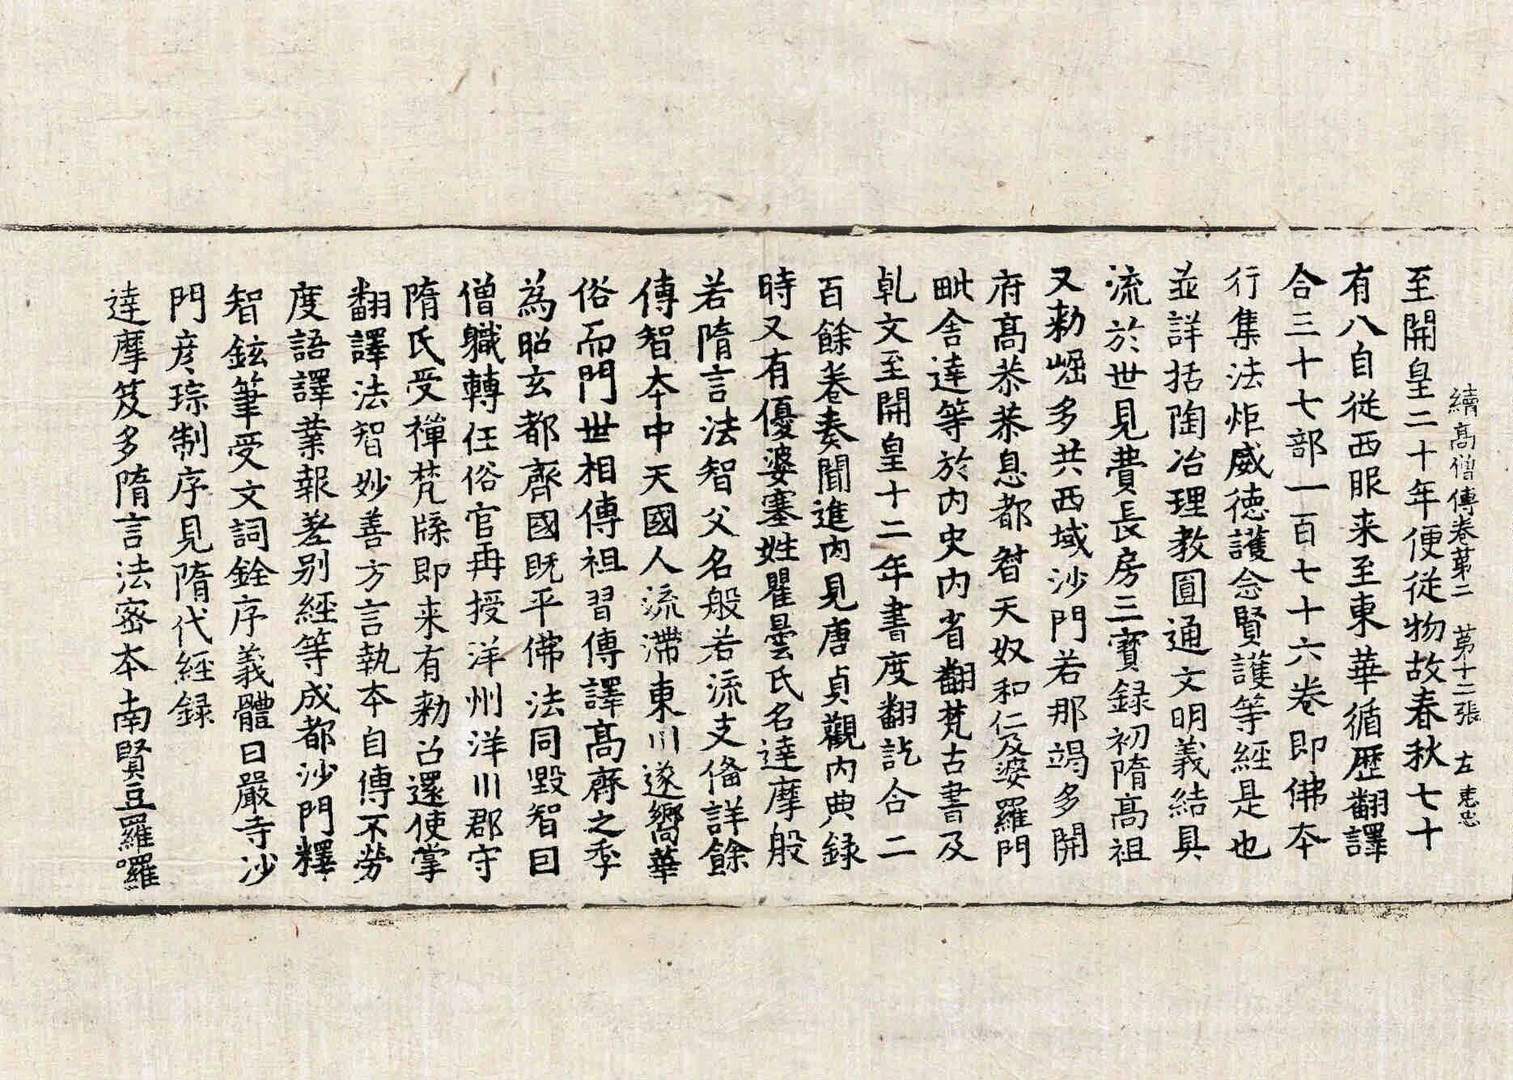 續高僧傳卷苐二 苐十二張 左 忠
至開皇二十年便從物故春秋七十
有八自從西服来至東華循歷翻譯
合三十七部一百七十六卷即佛本
行集法炬威德護念賢護等經是也
並詳括陶冶理教圓通文明義結具
流於世見費長房三寶錄初隋髙祖
又勑崛多共西域沙門若那竭多開
府髙恭恭息都督天奴和仁及婆羅門
毗舍達等於內史內省翻梵古書及
乹文至開皇十二年書度翻訖合二
百餘卷奏聞進內見唐貞觀內典録
時又有優婆塞姓瞿曇氏名達摩般
若隋言法智父名般若流支俻詳餘
傳智本中天國人流滯東川遂嚮華
俗而門世相傳祖習傳譯髙齊之季
為昭玄都齊國既平佛法同毀智曰
僧職轉任俗官再授洋州洋川郡守
隋氏受禪梵牒即来有勑召還使掌
翻譯法智妙善方言執本自傳不勞
度語譯業報差別經等成都沙門釋
智鉉筆受文詞銓序義體日嚴寺沙
門彦琮制序見隋代經録
達摩笈多隋言法密本南賢豆羅囉